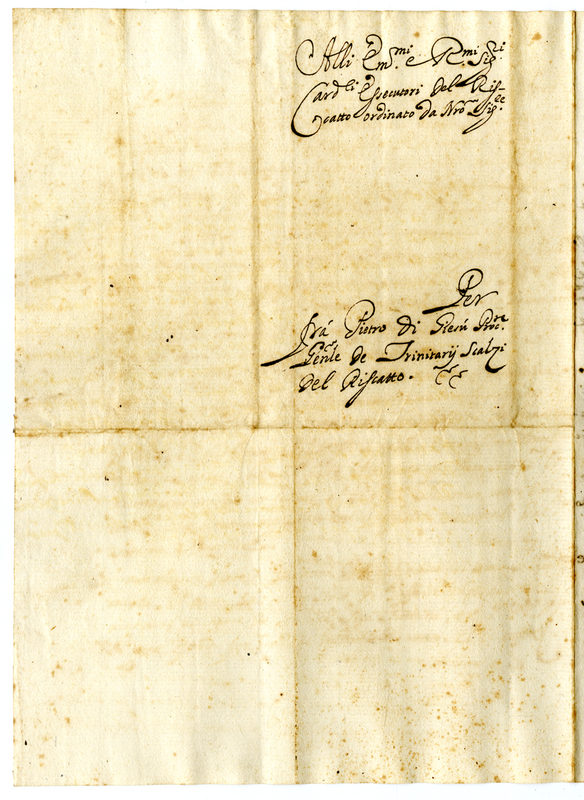 Alli Em.mi e R.mi Sig.ri
Card.li Essecutori del Ris-
catto ordinato da Nrõ Sig.re
Per
Frà Pietro di Giesù Proc.re
Gen̄le de Trinitarij Scalzi
del Riscatto.